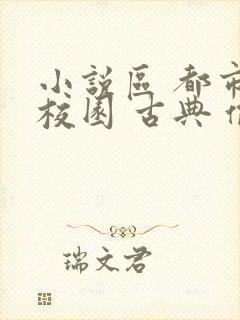 小說區 都市
校園 古典
瑞文君